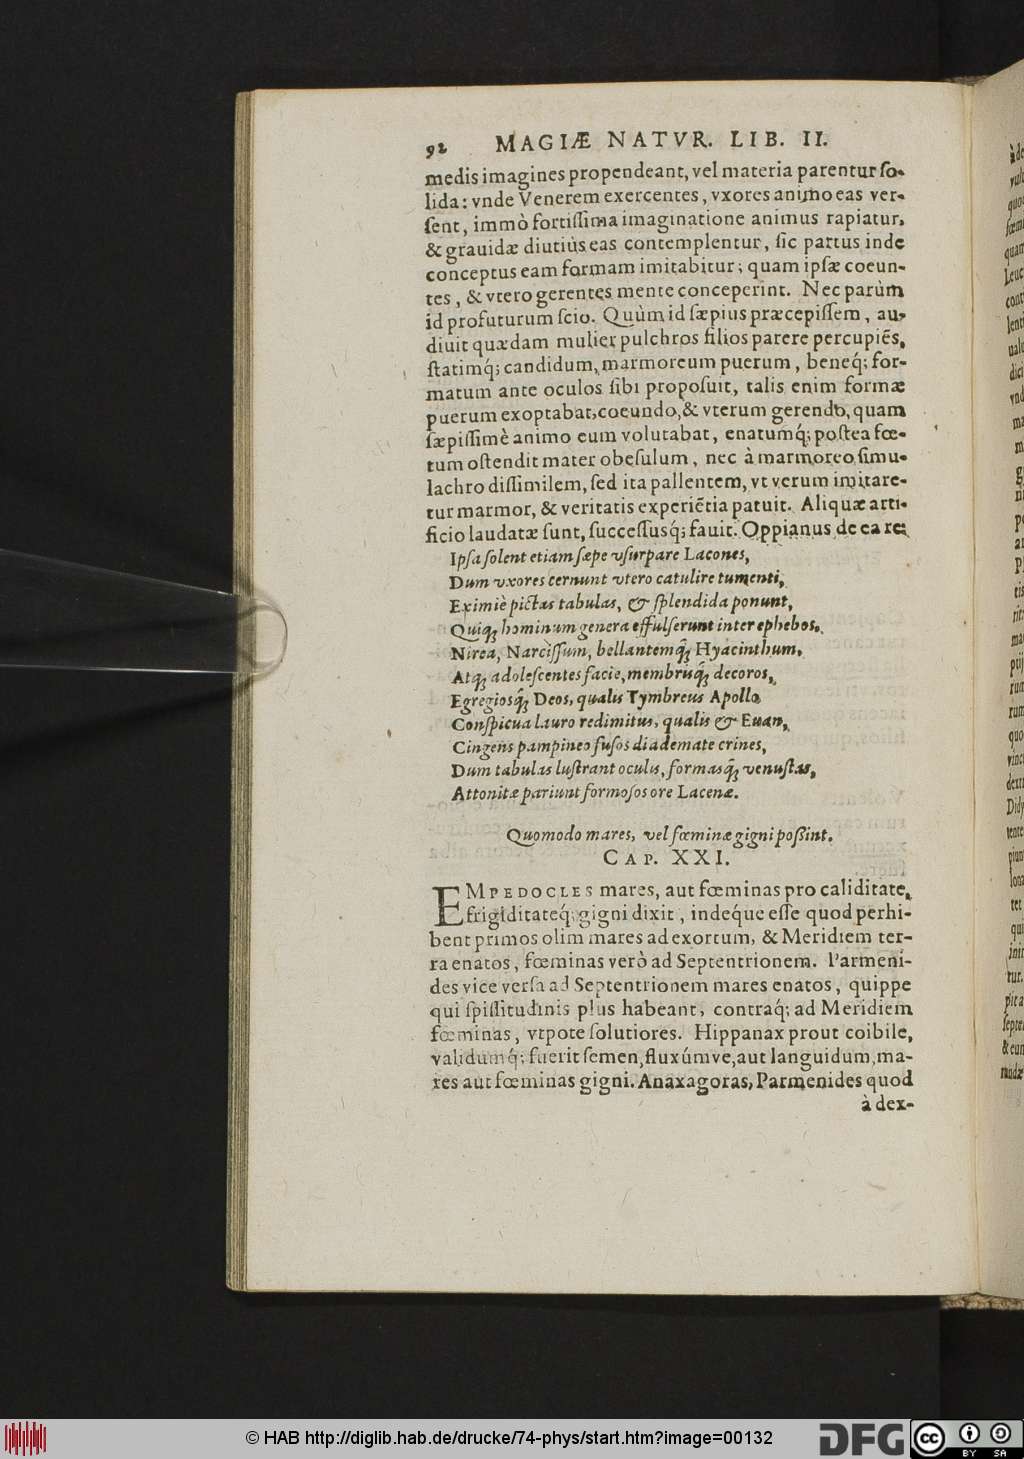 92 MAGIÆ NATVR. LIB. II.
medis imagines propendeant, vel materia parentur ſo-
lida: vnde Venerem exercentes, vxores animo eas ver-
ſent, immò fortiſſima imaginatione animus rapiatur,
& grauidæ diutiùs eas contemplentur, ſic partus inde
conceptus eam formam imitabitur; quam ipſæ coeun-
tes, & vtero gerentes mente conceperint. Nec parùm
id profuturum ſcio. Quùm id ſæpius præcepiſſem, au-
diuit quædam mulier pulchros filios parere percupiẽs,
ſtatimq́; candidum, marmoreum puerum, beneq́; for-
matum ante oculos ſibi propoſuit, talis enim formæ
puerum exoptabat, coeundo, & vterum gerendo, quam
ſæpiſſimè animo eum volutabat, enatumq́; poſtea fœ-
tum oſtendit mater obeſulum, nec à marmoreo ſimu-
lachro diſſimilem, ſed ita pallentem, vt verum imitare-
tur marmor, & veritatis experiẽtia patuit. Aliquæ arti-
ficio laudatæ ſunt, ſucceſſusq́; fauit. Oppianus de ea re;
Ipſa ſolent etiam ſæpe vſurpare Lacones,
Dum vxores cernunt vtero catulire tumenti,
Eximiè pictas tabulas, & ſplendida ponunt,
Quiq; hominum genera effulſerunt inter ephebos.
Nirea, Narciſſum, bellantemq́; Hyacinthum,
Atq; adoleſcentes facie, membrisq́; decoros,
Egregiosq́; Deos, qualis Tymbreus Apollo
Conſpicua lauro redimitus, qualis & Euan,
Cingens pampineo fuſos diademate crines,
Dum tabulas luſtrant oculis, formasq́; venuſtas,
Attonitæ pariunt formoſos ore Lacenæ.
Quomodo mares, vel fœminæ gigni poßint.
CAP. XXI.
EMPEDOCLES mares, aut fœminas pro caliditate,
frigiditateq́; gigni dixit, indeq́ue eſſe quod perhi-
bent primos olim mares ad exortum, & Meridiem ter-
ra enatos, fœminas verò ad Septentrionem. Parmeni-
des vice verſa ad Septentrionem mares enatos, quippe
qui ſpiſſitudinis plus habeant, contraq́; ad Meridiem
fœminas, vtpote ſolutiores. Hippanax prout coibile,
validumq́; fuerit ſemen, fluxúmve, aut languidum, ma-
res aut fœminas gigni. Anaxagoras, Parmenides quod
à dex-
© HAB http://diglib.hab.de/drucke/74-phys/start.htm?image=00132
DFG
cc
BY SA